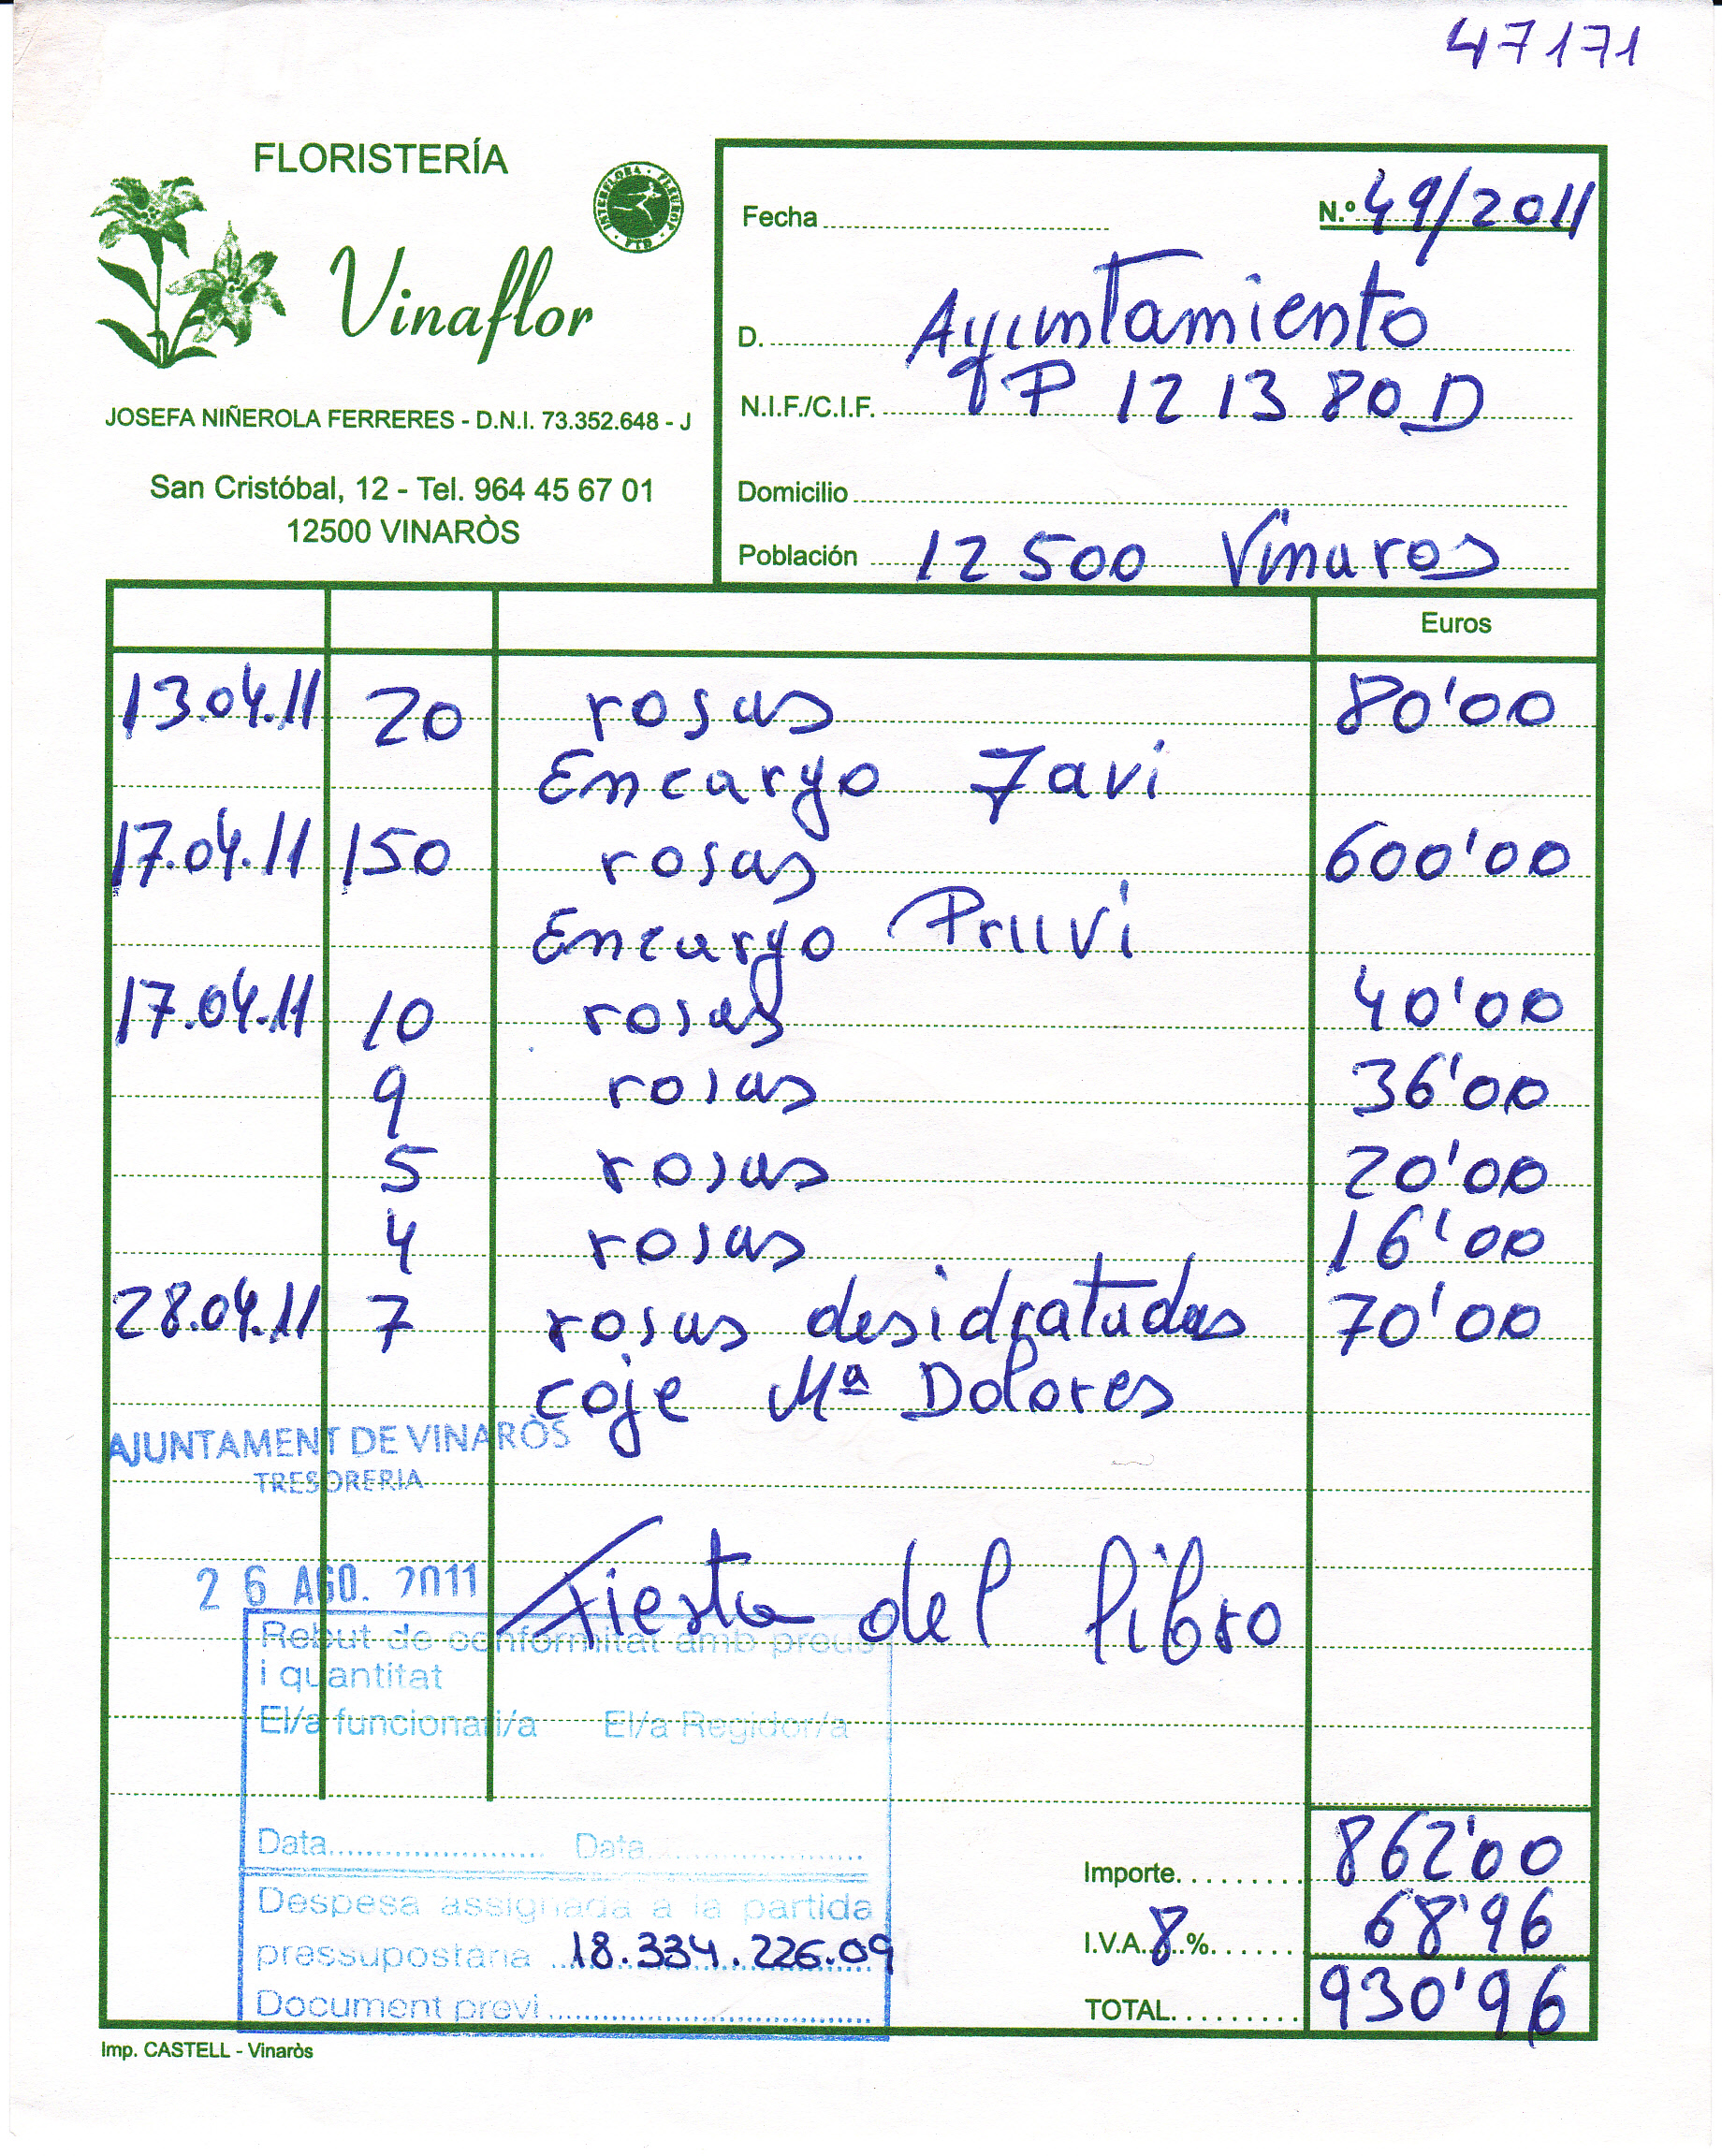 47171
FLORISTERÍA
Vinaflor
INTERFLORA · FLEUROP · FTD
JOSEFA NIÑEROLA FERRERES - D.N.I. 73.352.648 - J
San Cristóbal, 12 - Tel. 964 45 67 01
12500 VINARÒS
Fecha N.º 49/2011
D. Ayuntamiento
N.I.F./C.I.F. P 12 13 80 D
Domicilio
Población 12 500 Vinaros
Euros
13.04.11 20 rosas 80'00
Encargo Javi
17.04.11 150 rosas 600'00
Encargo
17.04.11 10 rosas 40'00
9 rosas 36'00
5 rosas 20'00
4 rosas 16'00
28.04.11 7 rosas desidratadas 70'00
coje Mª Dolores
AJUNTAMENT DE VINARÒS
TRESORERIA
26 AGO. 2011
Fiesta del libro
Rebut de conformitat amb preus
i quantitat
El/a funcionari/a El/a Regidor/a
Data Data
Despesa assignada a la partida
pressupostària 18.334.226.09
Document previ
Importe 862'00
I.V.A. 8 % 68'96
TOTAL 930'96
Imp. CASTELL - Vinaròs